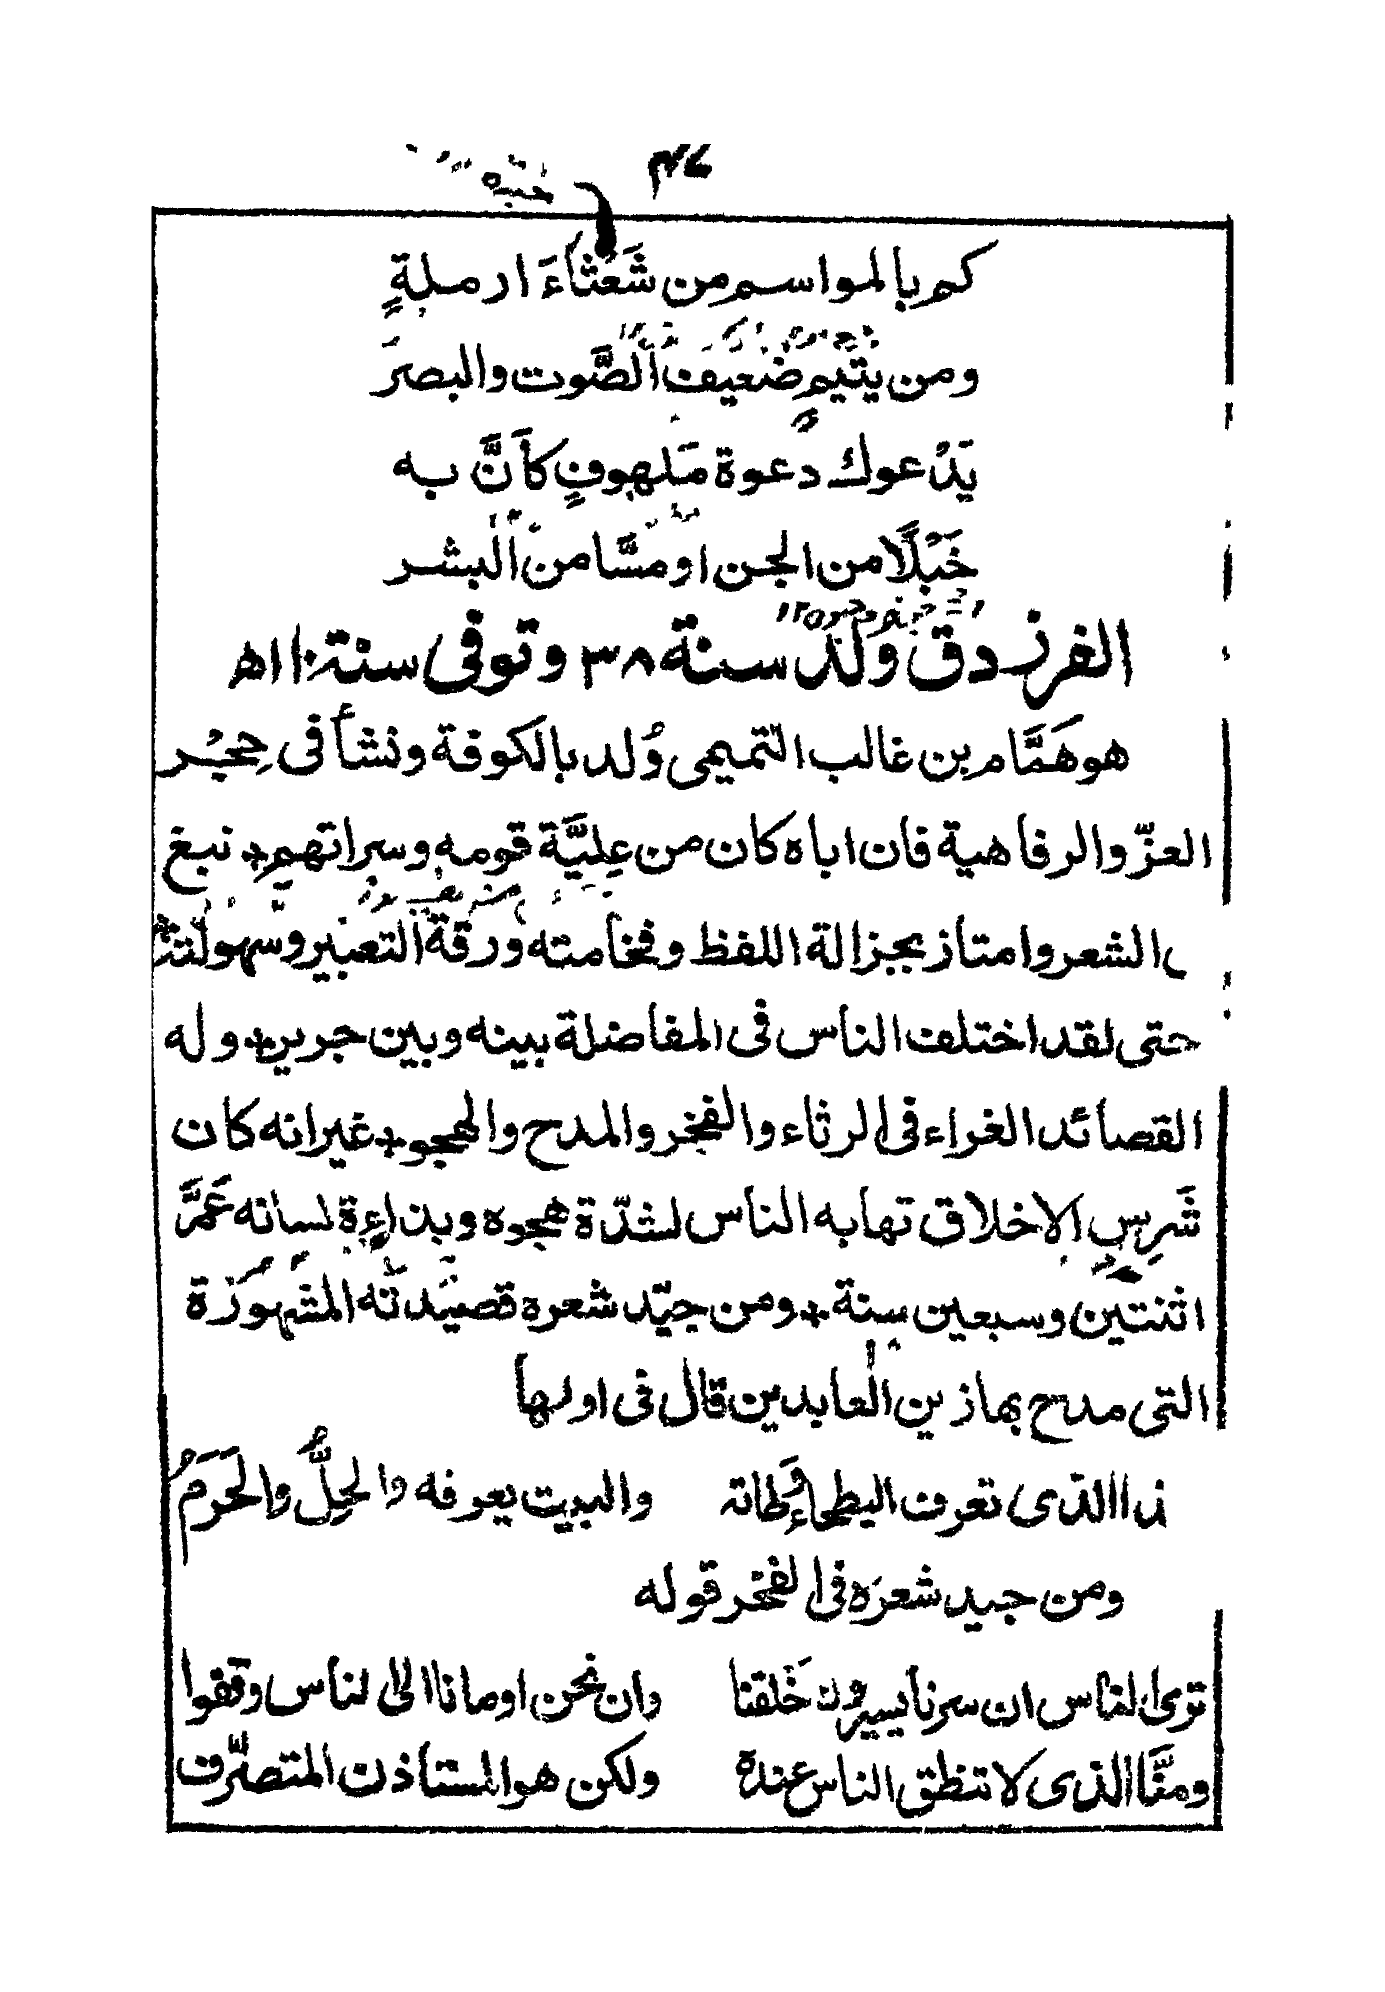 كم بالمواسم من شَعْثاءَ ارملةٍ
ومن يتيمٍ ضعيف الصَّوت والبصرَ
يَدْعوك دعوة مَلهوفٍ كأنَّ به
خَبْلًا من الجن او مسَّا من البشر
الفرزدق ولد سنة ٣٨ وتوفى سنة ١١٠ه
هو هَمَّام بن غالب التميمى وُلد بالكوفة ونشأ فى حِجْر
العزّ والرفاهية فان اباه كان من عِلِيَّة قومه وسراتهم + نبغ
الشعر وامتاز بجزالة اللفظ وفخامته ورقة التعبير وسهولته
حتى لقد اختلف الناس فى المفاضلة بينه وبين جرير + وله
القصائد الغراء فى الرثاء والفخر والمدح والهجو + غير انه كان
شَرِس الاخلاق تهابه الناس لشدّة هجوه وبذاءة لسانه عَمَّرَ
اثنتين وسبعين سنة + ومن جيّد شعره قصيدته المشهورة
التى مدح بها زين العابدين قال فى اولها
ذا الذى تعرف البطحاء وطاته والبيت يعرفه والحِلُّ والحَرَمُ
ومن جيد شعره فى الفخر قوله
ترى الناس ان سرنا يسيرون خَلفنا وان نحن اومانا الى الناس وقفوا
ومنَّا الذى لا تنطق الناس عنده ولكن هو المستأذن المتصرّف